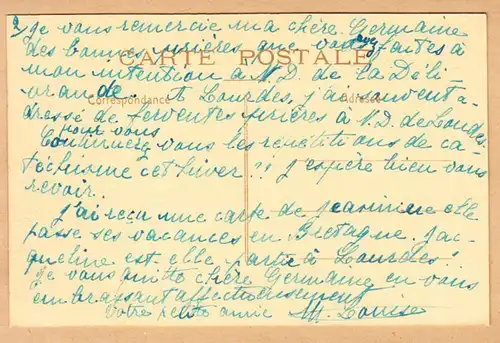 2) Je vous remercie ma chère Germaine
des bonnes prières que vous avez faites à
CARTE POSTALE
mon intention à N.D. de la Déli-
vrande. A Lourdes, j'ai souvent a-
Correspondance
Adresse
dressé de ferventes prières à N.D. de Lourdes
pour vous
Continuerez vous les répétitions de ca-
téchisme cet hiver !! j'espère bien vous
revoir.
j'ai reçu une carte de jeannine elle
passe ses vacances en Bretagne. jac-
queline est elle partie à Lourdes !
Je vous quitte chère Germaine en vous
embrassant affectueusement
Votre petite amie M. Louise